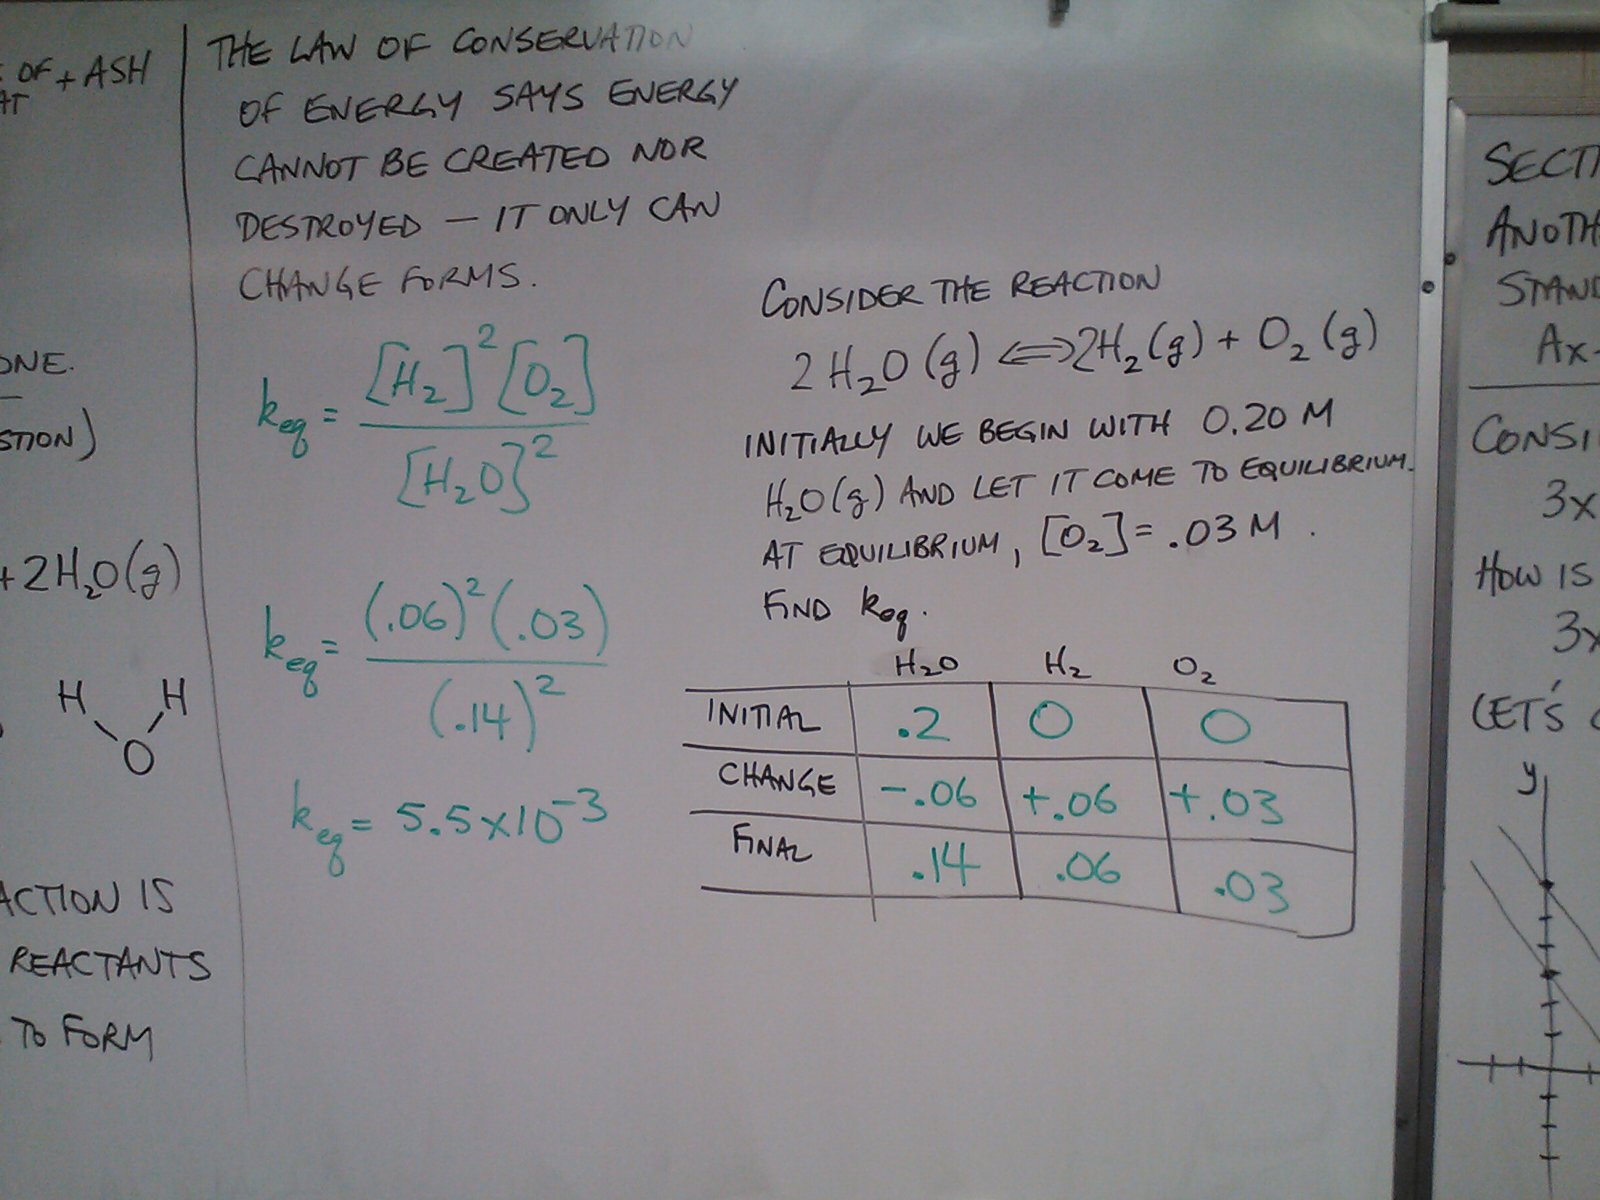 OF + ASH
AT
ONE.
STION)
+2H₂O(g)
H H
O
ACTION IS
REACTANTS
TO FORM
THE LAW OF CONSERVATION
OF ENERGY SAYS ENERGY
CANNOT BE CREATED NOR
DESTROYED – IT ONLY CAN
CHANGE FORMS.
keq = [H₂]²[O₂]
[H₂O]²
keq = (.06)²(.03)
(.14)²
keq = 5.5x10⁻³
CONSIDER THE REACTION
2H₂O(g) ⇔ 2H₂(g) + O₂(g)
INITIALLY WE BEGIN WITH 0.20 M
H₂O(g) AND LET IT COME TO EQUILIBRIUM.
AT EQUILIBRIUM, [O₂] = .03 M.
FIND keq.
H₂O H₂ O₂
INITIAL .2 0 0
CHANGE -.06 +.06 +.03
FINAL .14 .06 .03
SECTI
ANOTH
STAND
Ax-
CONSI
3x
HOW IS
3x
LET'S
y